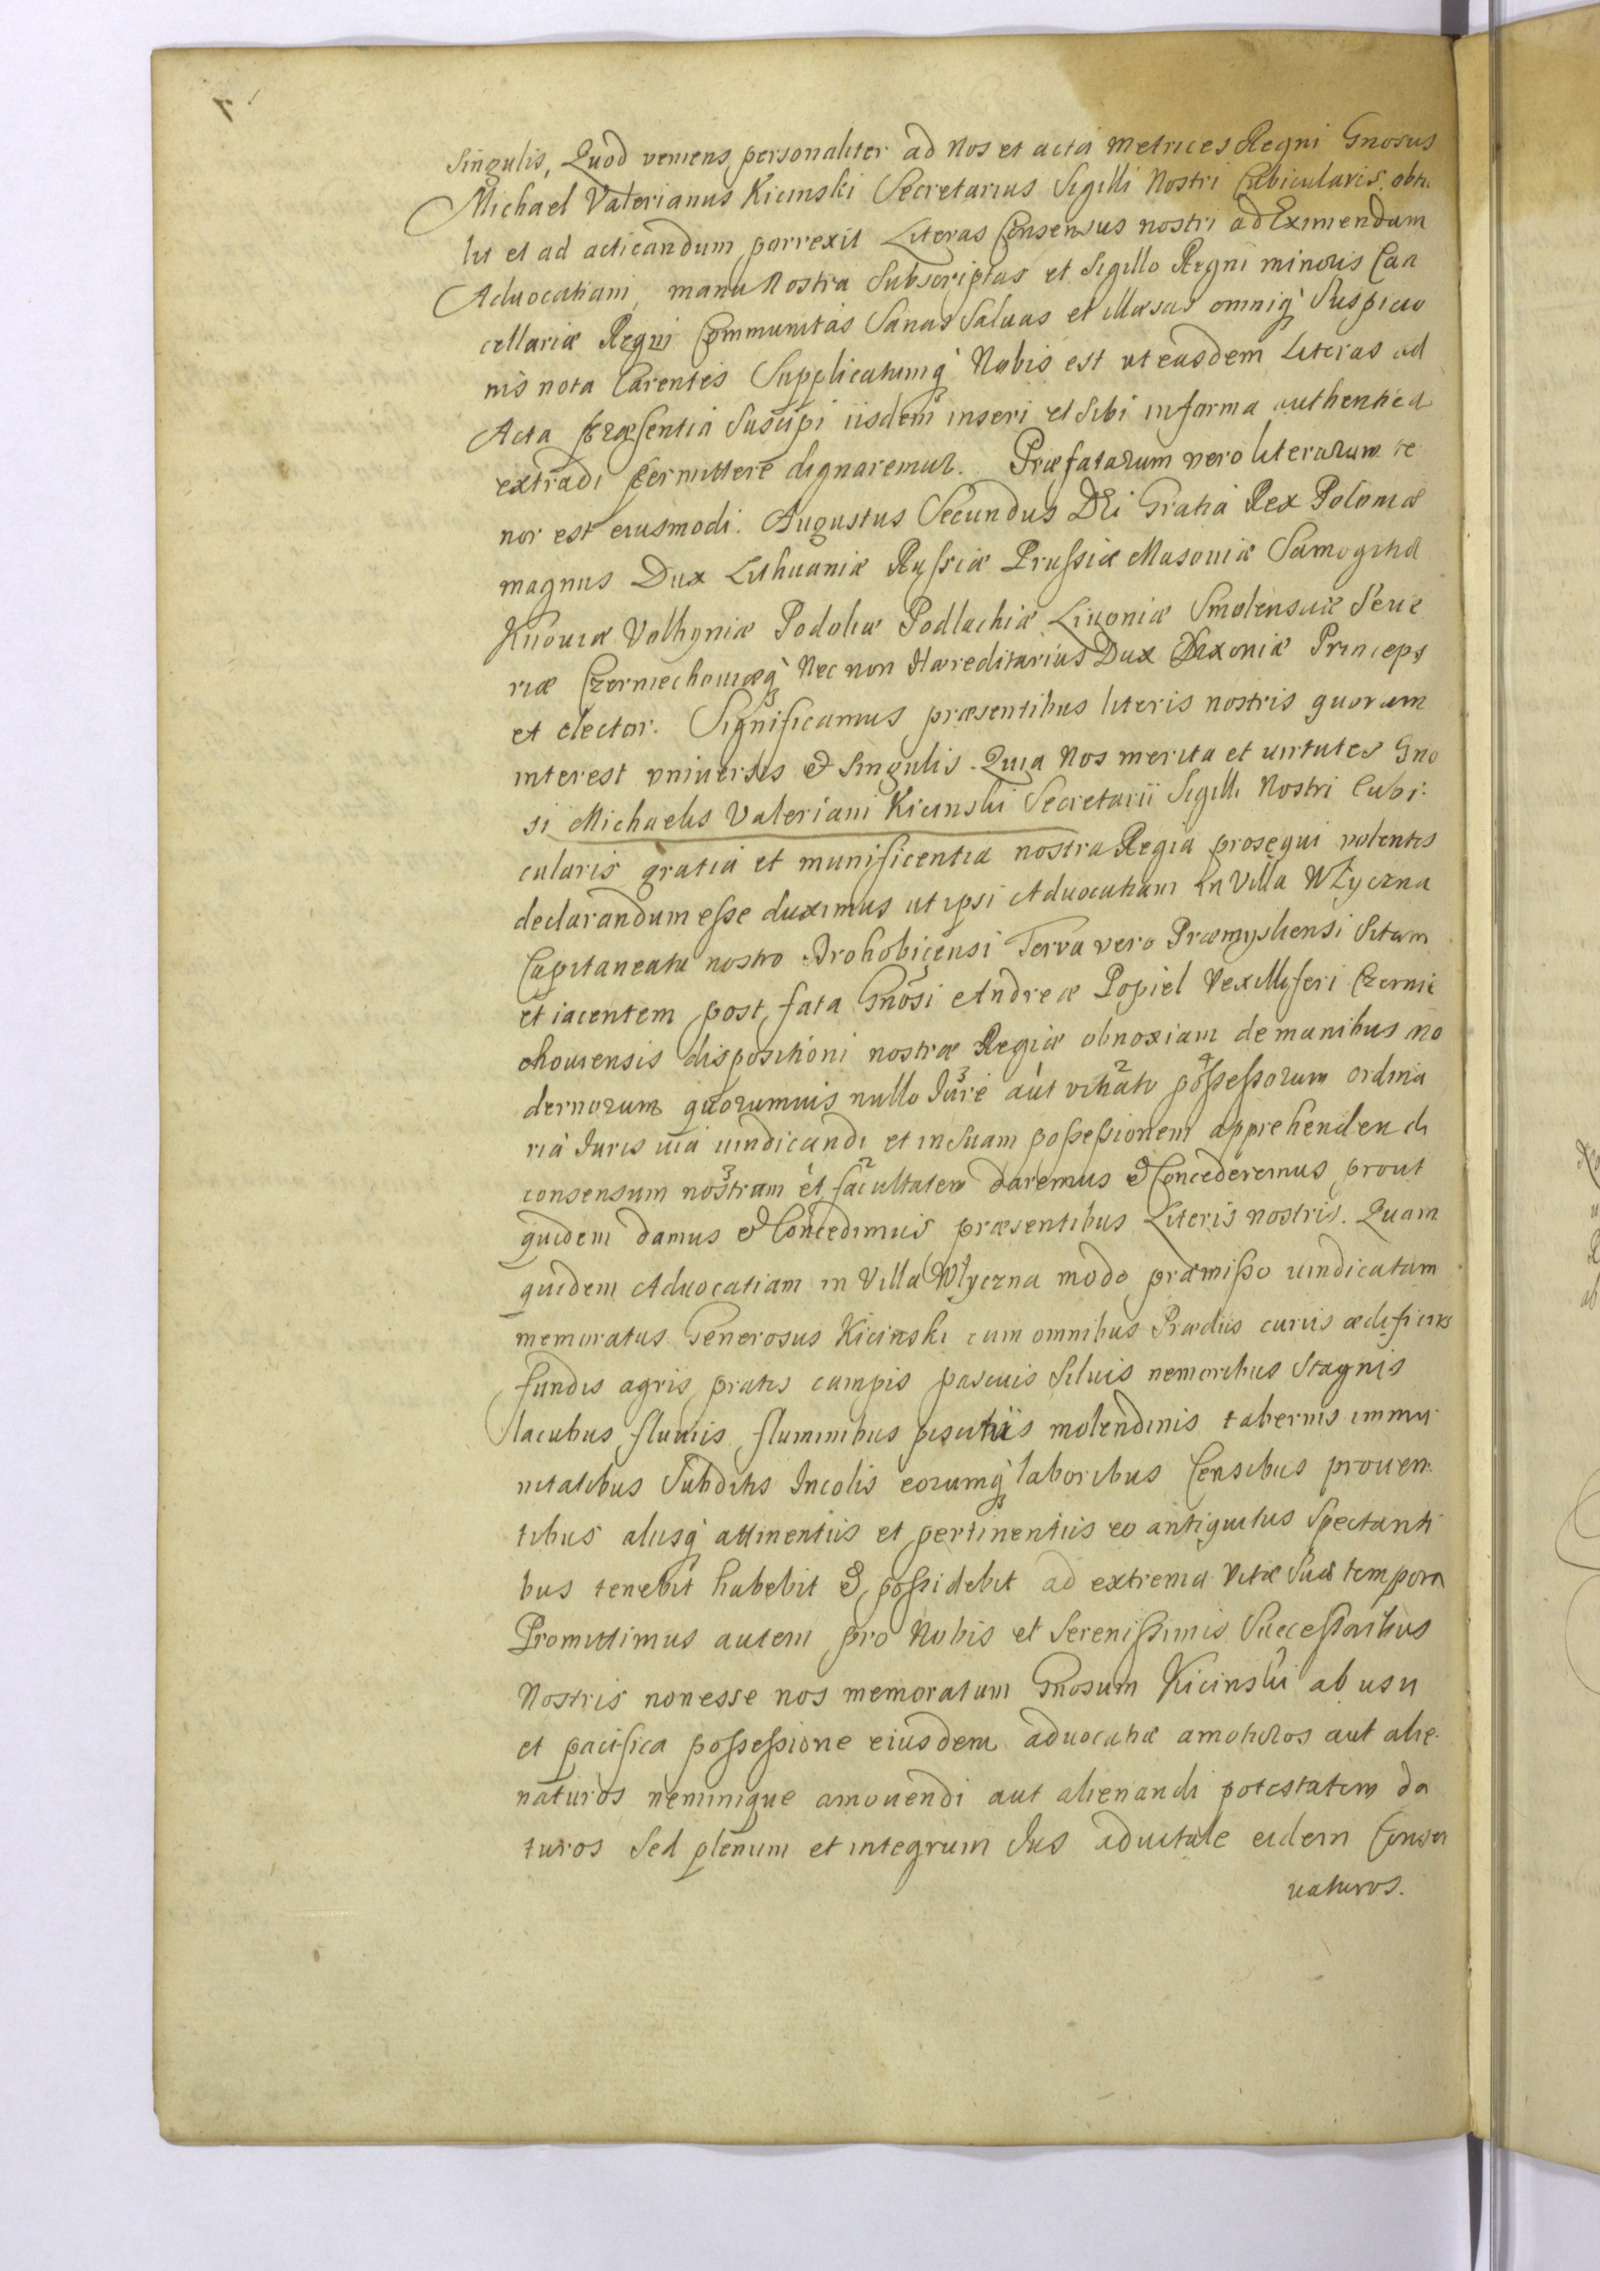 Singulis, Quod veniens personaliter ad Nos et acta Metrices Regni Gnosus
Michael Valerianus Kicinski Secretarius Sigilli Nostri Cubicularis, obtu
lit et ad acticandum porrexit Literas Consensus nostri ad Eximendam
Advocatiam, manu Nostra Subscriptas et Sigillo Regni minoris Can
cellariæ Regni Communitas Sanas Salvas et illæsas omniq̀ Suspicio
nis nota Carentes Supplicatumq̀ Nobis est ut easdem Literas ad
Acta præsentia Suscipi iisdem inseri et Sibi in forma authentica
extradi permittere dignaremur. Præfatarum vero literarum te
nor est eiusmodi. Augustus Secundus Dei Gratia Rex Poloniæ
magnus Dux Lithuaniæ Russiæ Prussiæ Masoviæ Samogitiæ
Kijoviæ Volhyniæ Podoliæ Podlachiæ Livoniæ Smolensciæ Seve
riæ Czerniechoviæq̀ Nec non Hæreditarius Dux Saxoniæ Princeps
et elector. Significamus præsentibus literis nostris quorum
interest vniversis & Singulis. Quia Nos merita et virtutes Gno
si Michaelis Valeriani Kicinski Secretarii Sigilli Nostri Cubi-
cularis gratia et munificentia nostra Regia prosequi volentes
declarandum esse duximus ut ipsi Advocatiam in Villa Włyczna
Capitaneatu nostro Drohobicensi Terra vero Præmysliensi Sitam
et iacentem post fata Gnosi Andreæ Popiel Vexilliferi Czernie
choviensis dispositioni nostræ Regiæ obnoxiam de manibus mo
dernorum quorumvis nullo Jure aut vitiato possessorum ordina
ria Juris via vindicandi et in Suam possessionem apprehendendi
consensum nostram et facultatem daremus & Concederemus prout
quidem damus & Concedimus præsentibus Literis nostris. Quam
quidem Advocatiam in Villa Włyczna modo præmisso vindicatam
memoratus Generosus Kicinski cum omnibus Prædiis curiis ædificiis
fundis agris pratis campis pascuis Silvis nemoribus Stagnis
lacubus fluviis fluminibus piscinis molendinis tabernis immu
nitatibus Subditis Incolis eorumq̀ laboribus Censibus proven
tibus aliisq̀ attinentiis et pertinentiis eo antiquitus Spectanti
bus tenebit habebit & possidebit ad extrema Vitæ Suæ tempora
Promittimus autem pro Nobis et Serenissimis Successoribus
Nostris non esse nos memoratum Gnosum Kicinski ab usu
et pacifica possessione eiusdem advocatiæ amoturos aut alie-
naturos neminique amovendi aut alienandi potestatem da
turos Sed plenum et integrum Jus advitale eidem Conser
vaturos.